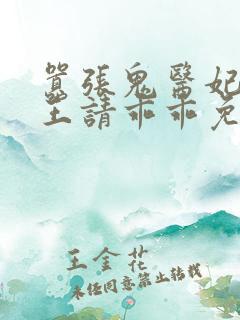 囂張鬼醫妃
王請乖乖免
王金花
未經同意禁止轉載